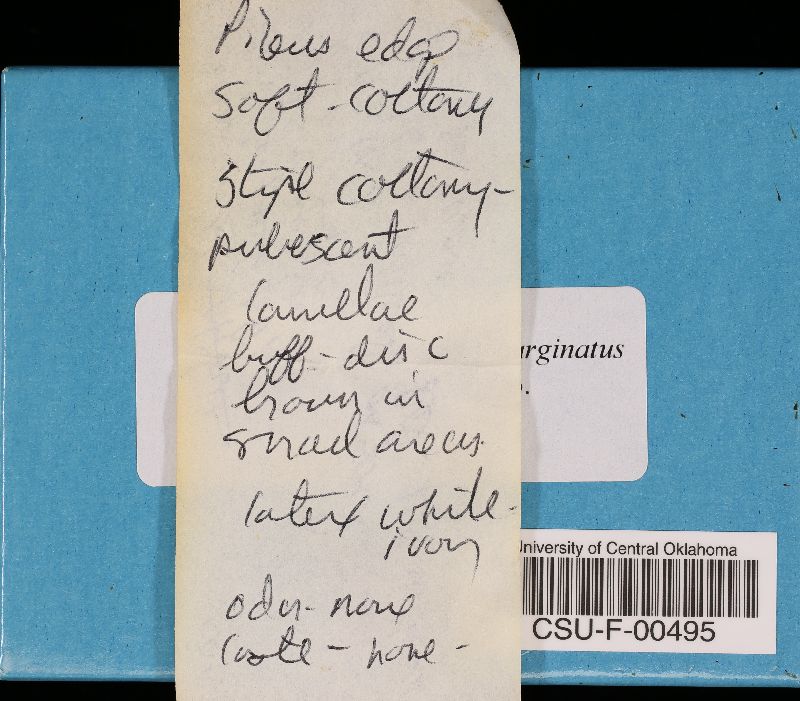 Pileus edge
soft-cottony
stipe cottony-
pubescent
lamellae
buff-disc
brown in
small areas
latex white-
ivory
odor-none
taste - none-
arginatus
University of Central Oklahoma
CSU-F-00495